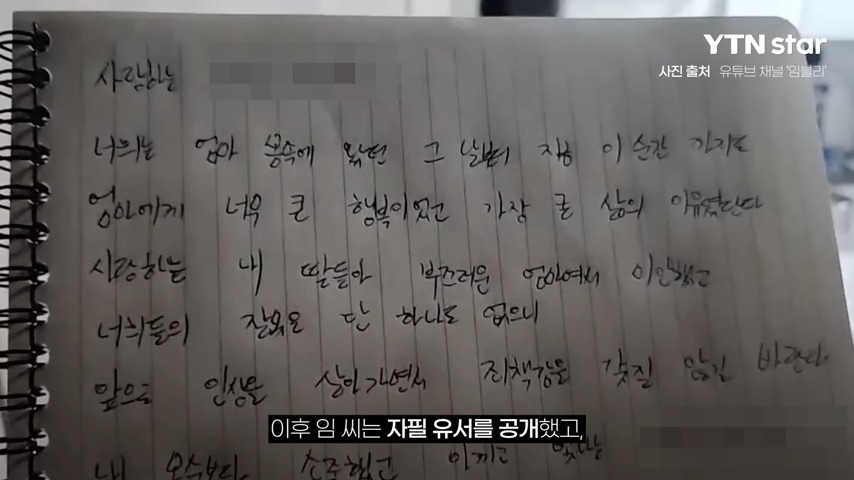 YTN star
사진 출처 유튜브 채널 '임블리'
사랑하는
너희는 엄마 뱃속에 왔던 그 날부터 지금 이 순간 까지도
엄마에게 너무 큰 행복이었고 가장 큰 삶의 이유였단다
사랑하는 내 딸들아 부끄러운 엄마여서 미안했고
너희들의 잘못은 단 하나도 없으니
앞으로 인생을 살아가면서 죄책감을 갖질 않길 바란다
내 목숨보다 소중했고 아끼고
이후 임 씨는 자필 유서를 공개했고,